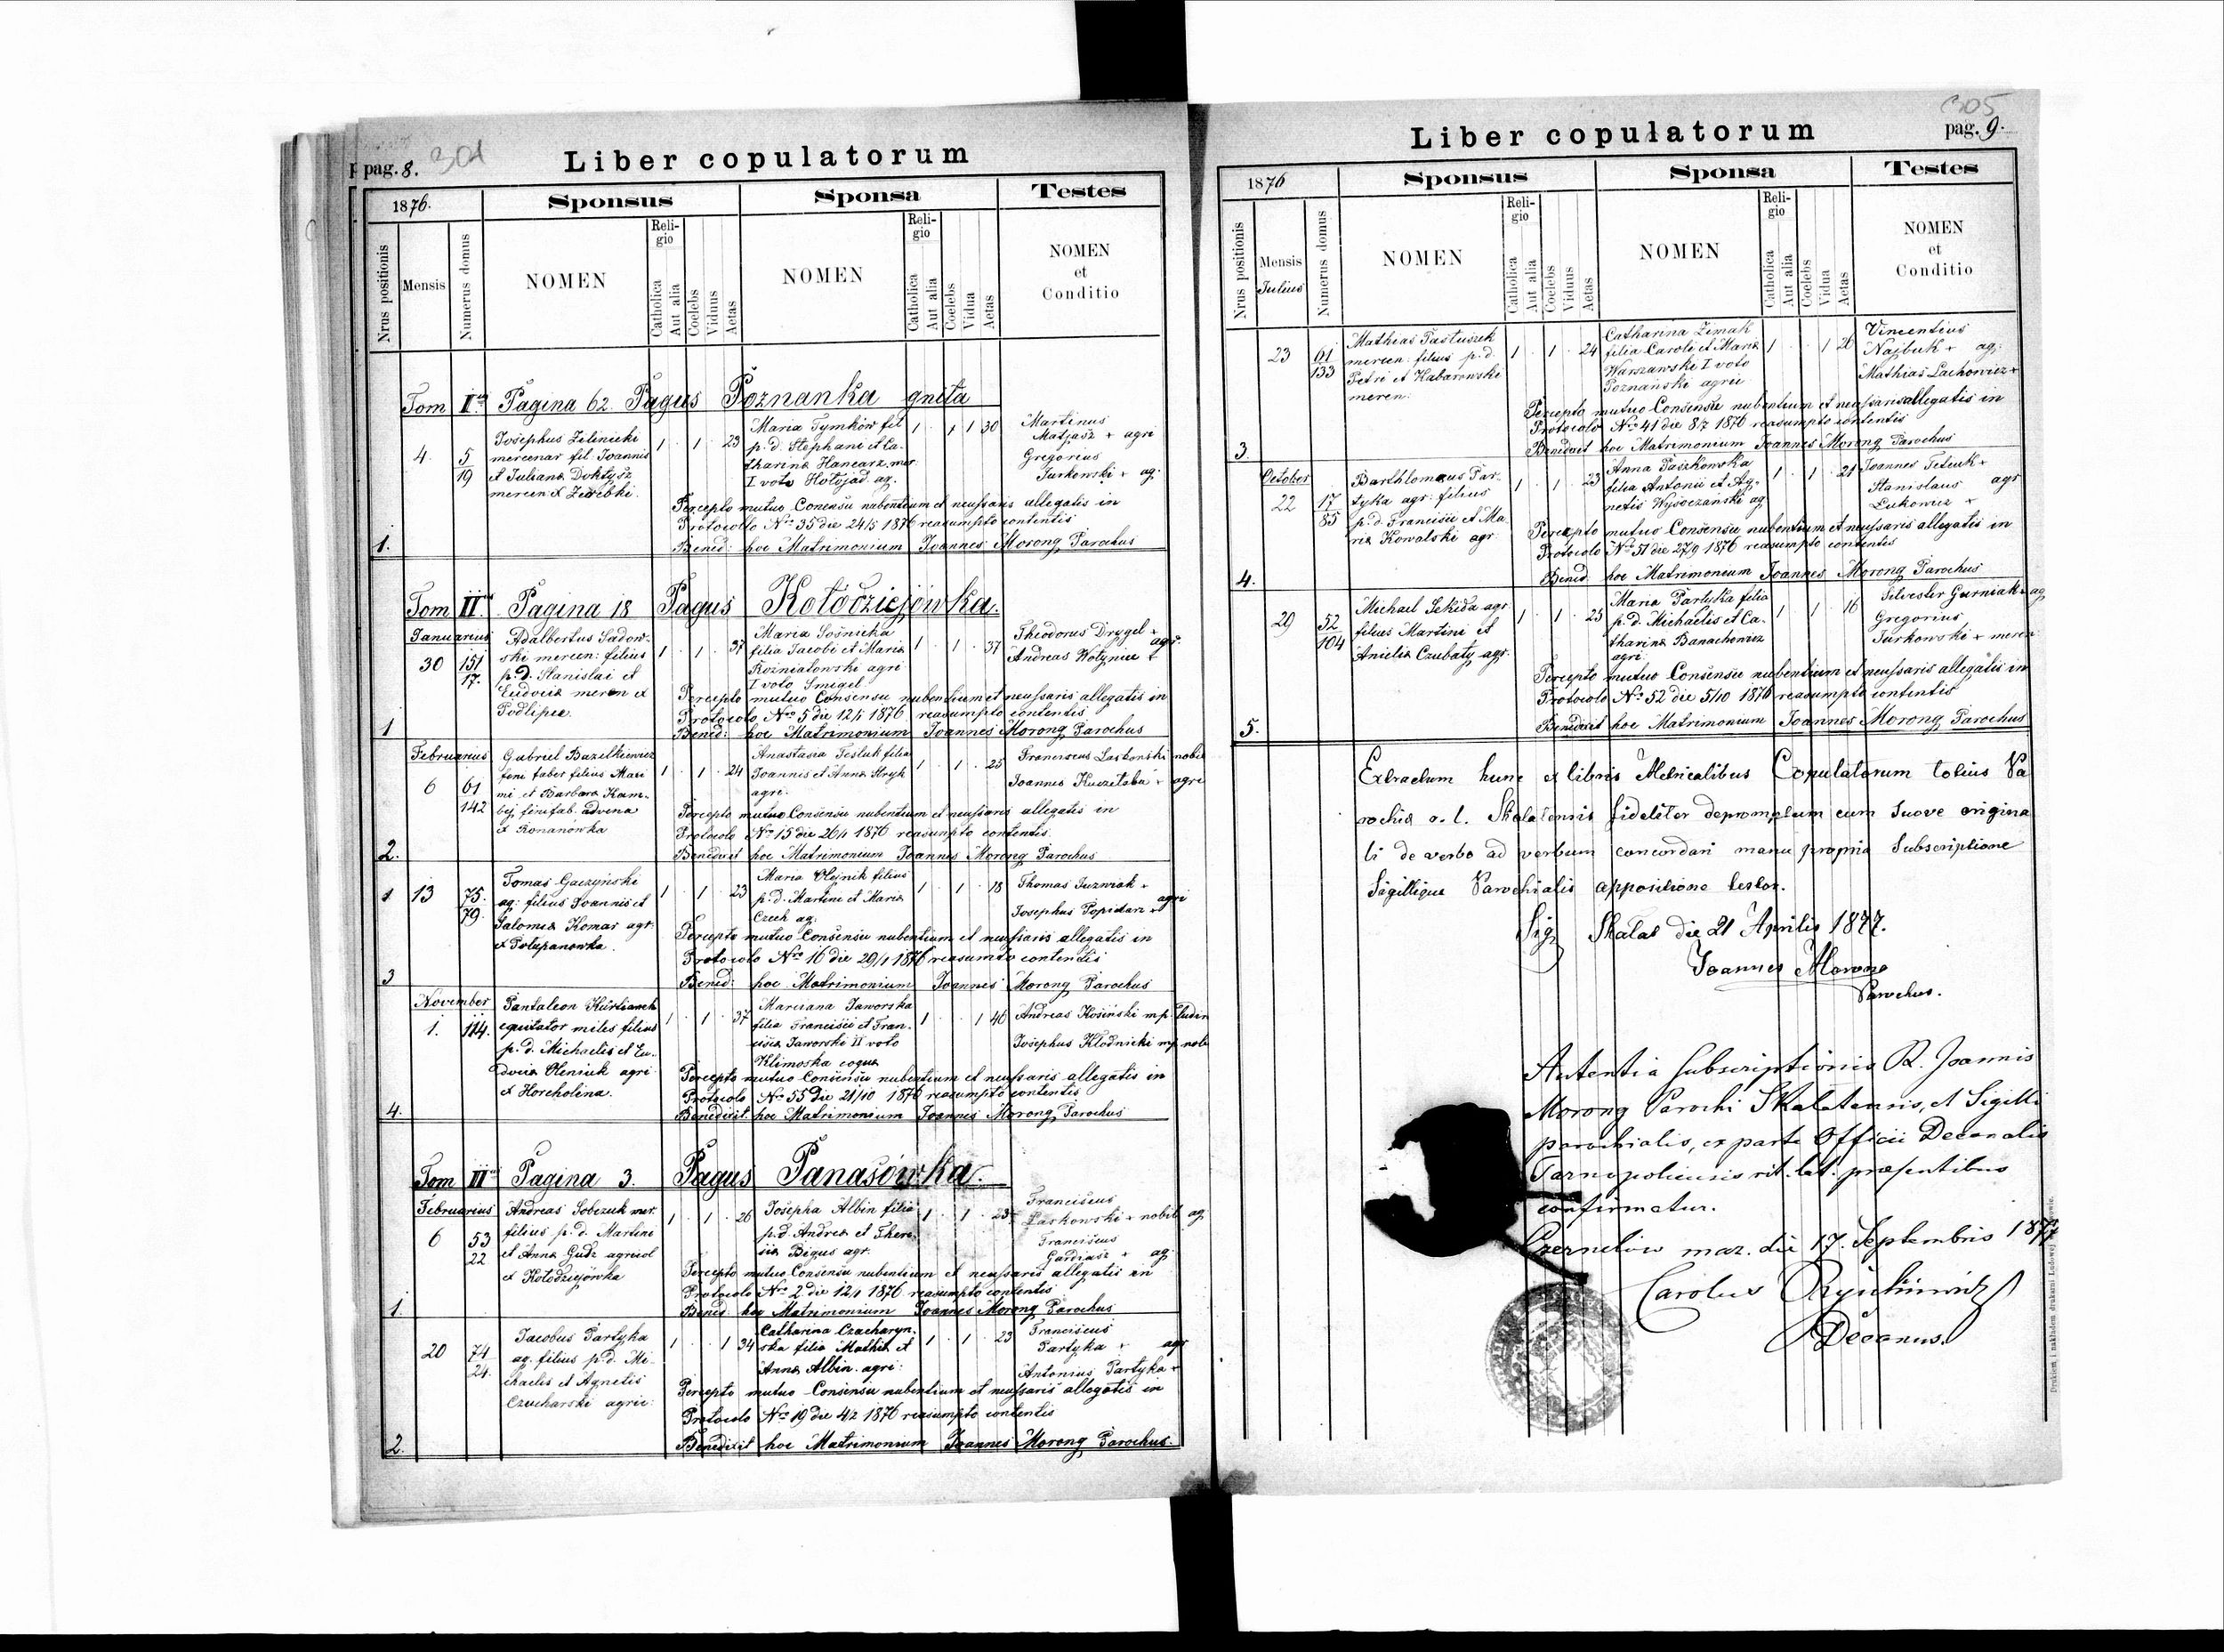 pag. 8. 304
Liber copulatorum
1876. Sponsus Sponsa Testes
Nrus positionis Mensis Numerus domus NOMEN Religio Catholica Aut alia Coelebs Viduus Aetas NOMEN Religio Catholica Aut alia Coelebs Vidua Aetas NOMEN et Conditio
Tom I Pagina 62. Pagus Poznanka gnita
4. 5/19
Josephus Zelinicki
mercenar fil. Joannis
et Juliana Doktysz
mercen ex Zerebki.
1 . 1 . 23
Maria Tymków fil
p. d. Stephani et Ca-
tharina Hancarz mer.
I voto Hołojad. ag.
1 . 1 1 30
Martinus
Matjasz + agri
Gregorius
Turkowski + ag.
Percepto mutuo Consensu nubentium et neussariis allegatis in
Protocollo Nro 35 die 24/5 1876 reasumpto contentis
1. Bened: hoc Matrimonium Joannes Morong Parochus
Tom II. Pagina 18 Pagus Kołodziejówka.
Januarius
30 151/17.
Adalbertus Sadow-
ski mercen: filius
p. d. Stanislai et
Ludovica mercen ex
Podlipce.
1 . 1 . 37
Maria Sośnicka
filia Jacobi et Maria
Rozniatowski agri
I voto Smigel.
1 . 1 . 37
Theodorus Drygel +
agr.
Andreas Wołyniec +
Percepto mutuo Consensu nubentium et neussaris allegatis in
Protocolo Nro 5 die 12/1 1876 reasumpto contentis
1 Bened: hoc Matrimonium Joannes Morong Parochus
Februarius
6 61/142
Gabriel Bazelkiewicz
feni faber filius Mari
ni et Barbara Kam-
bej fenifab. advena
ex Romanówka
1 . 1 . 24
Anastasia Tesluk filia
Joannis et Anna Stryk
agri.
1 . 1 . 25
Franciscus Laskowski nobil
Joannes Kuczetaba + agri
Percepto mutuo Consensu nubentium et neussaris allegatis in
Protocolo Nro 15 die 26/1 1876 reasumpto contentis.
2. Benedixit hoc Matrimonium Joannes Morong Parochus
13 75./79.
Tomas Gaczyński
ag: filius Joannis et
Salomea Komar agr.
ex Połupanowka.
1 . 1 . 23
Maria Olejnik filius
p. d. Martini et Maria
Czech ag.
1 . 1 . 18
Thomas Juzwiak +
agri
Josephus Popidarz +
Percepto mutuo Consensu nubentium et neussaris allegatis in
Protocolo Nro 16 die 29/1 1876 reasumto contentis
3 Bened: hoc Matrimonium Joannes Morong Parochus
November
1. 114.
Pantaleon
equitator miles filius
p. d. Michaelis et Eu-
docia Oleniuk agri
ex Horcholina.
1 . 1 . 37
Marciana Jaworska
filia Francisci et Fran-
cisca Jaworski II voto
Klimoska coqua
1 . . 1 46
Andreas Kosiński mp. ludim
Josephus Kłodnicki mp nobi
Percepto mutuo Consensu nubentium et neussaris allegatis in
Protocolo Nro 55 die 21/10 1876 reasumpto contentis
4. Benedixit hoc Matrimonium Joannes Morong Parochus
Tom III Pagina 3. Pagus Panasówka.
Februarius
6 53/22
Andreas Sobczuk mer.
filius p. d. Martini
et Anna Gudz agricol
ex Kołodziejówka
1 . 1 . 26
Josepha Albin filia
p. d. Andrea et There-
sia Bigus agr.
1 . 1 . 23
Franciscus
Laskowski + nobil ag.
Franciscus
Gardiasz + ag.
Percepto mutuo Consensu nubentium et neussaris allegatis in
Protocolo Nro 2 die 12/1 1876 reasumpto contentis
1. Bened hoc Matrimonium Joannes Morong Parochus
20 74/24.
Jacobus Partyka
ag. filius p. d. Mi-
chaelis et Agnetis
Czucharski agric:
1 . . 1 34
Catharina Czacharyn-
ska filia Mathia et
Anna Albin agri:
1 . 1 . 23
Franciscus
Partyka + agr
Antonius Partyka +
Percepto mutuo Consensu nubentium et neussaris allegatis in
Protocolo Nro 19 die 4/2 1876 reasumpto contentis
2. Benedixit hoc Matrimonium Joannes Morong Parochus.
305
pag. 9.
Liber copulatorum
1876 Sponsus Sponsa Testes
Nrus positionis Mensis Julius Numerus domus NOMEN Religio Catholica Aut alia Coelebs Viduus Aetas NOMEN Religio Catholica Aut alia Coelebs Vidua Aetas NOMEN et Conditio
23 61/133
Mathias Pastuszek
mercen: filius p. d.
Petri et Habarowski
mercen:
1 . 1 . 24
Catharina Zimak
filia Caroli et Maria
Warszawski I voto
Poznański agric
1 . . 1 26
Vincentius
Najbuk + ag:
Mathias Lachowicz +
Percepto mutuo Consensu nubentium et neussaris allegatis in
Protocolo Nro 41 die 8/7 1876 reasumpto contentis
3. Benedixit hoc Matrimonium Joannes Morong Parochus
October
22 17/85
Barthlomaeus Par-
tyka agr. filius
p. d. Francisci et Ma
ria Kowalski agr.
1 . 1 . 23
Anna Paszkowska
filia Antonii et Ag-
netis Wysoczański ag
1 . 1 . 21
Joannes Teteuk +
Stanislaus agr
Lukowicz +
Percepto mutuo Consensu nubentium et neussaris allegatis in
Protocolo Nro 51 die 27/9 1876 reasumpto contentis
4. Bened hoc Matrimonium Joannes Morong Parochus
29 52/104
Michael Sekida agr.
filius Martini et
Anielia Czubaty agr.
1 . 1 . 25
Maria Partyka filia
p. d. Michaelis et Ca-
tharina Banachowicz
agri.
1 . 1 . 16
Silvester Gurniak + ag
Gregorius
Turkowski + mercen
Percepto mutuo Consensu nubentium et neussaris allegatis in
Protocolo Nro 52 die 5/10 1876 reasumpto contentis
5. Benedixit hoc Matrimonium Joannes Morong Parochus
Extractum hunc ex libris Metricalibus Copulatorum totius Pa
rochia r. l. Skalatensis fideliter depromptum cum suove origina
li de verbo ad verbum concordari manu propria Subscriptione
Sigillique Parochialis appositione testor.
Sig Skalat die 21 Aprilis 1877.
Joannes Morong
Parochus.
Autentia subscriptionis R. Joannis
Morong Parochi Skalatensis, et Sigilli
parochialis, ex parte Officii Decanalis
Tarnopoliensis rit. lat. præsentibus
confirmatur.
Czernelów maz. die 17. Septembris 1877
Carolus
Decanus.
Drukiem i nakładem drukarni Ludowej